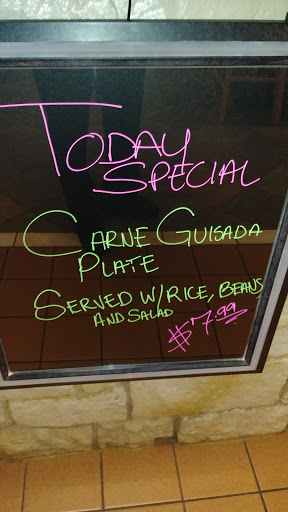 TODAY
SPECIAL
CARNE GUISADA
PLATE
SERVED W/RICE, BEANS,
AND SALAD
$7.99